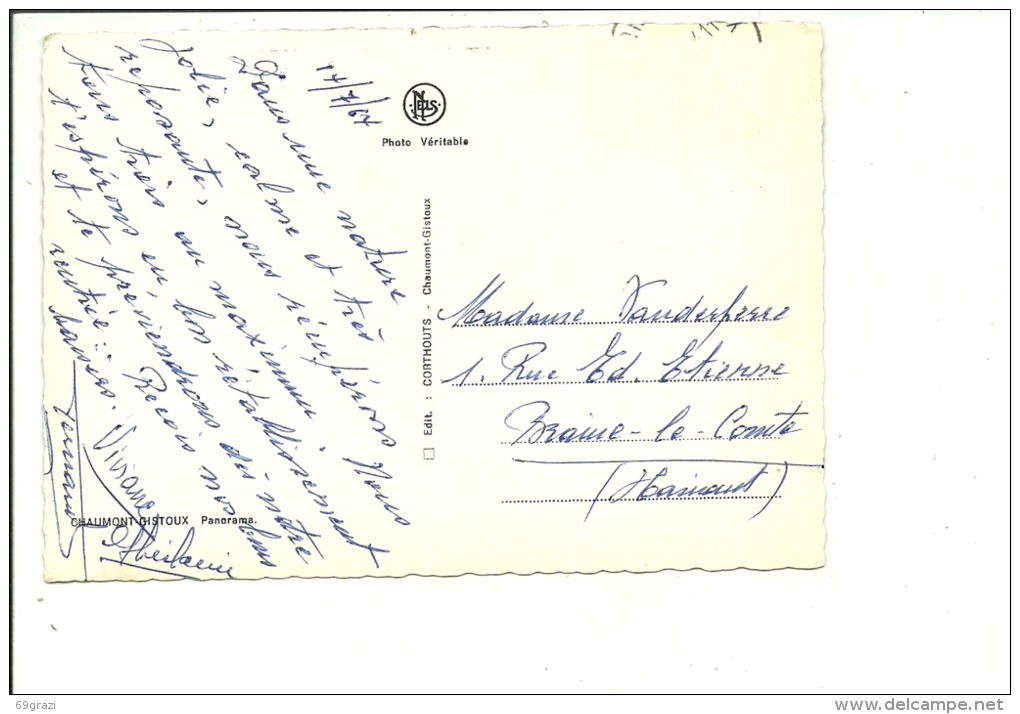 17/7/67
Dans une nature
jolie, calme et très
reposante, nous récupérons
tous trois au maximum. Nous
t'espérons en bon rétablissement
et te préviendrons dès notre
rentrée. Reçois nos bons
baisers. Viviane
Fernand
Ghislaine
NELS
Photo Véritable
Edit. : CORTHOUTS - Chaumont-Gistoux
Madame Vanderperre
1. Rue Ed. Etienne
Braine-le-Comte
(Hainaut)
CHAUMONT-GISTOUX Panorama.
69grazi
delcampe.net